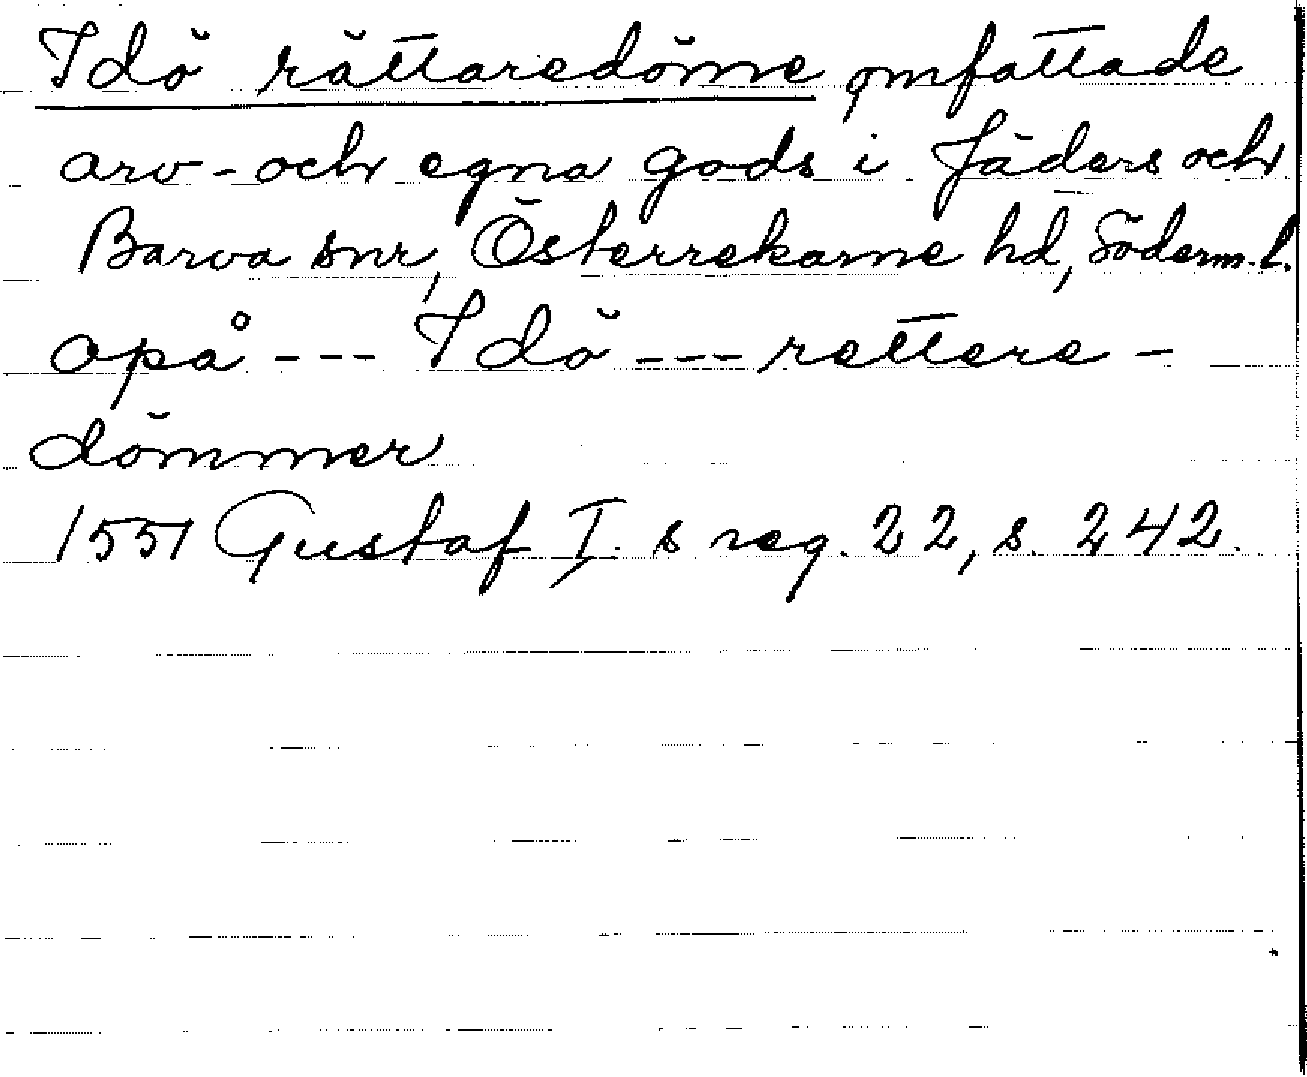 Idö rättaredöme omfattade
arv- och egna gods i Jäders och
Barva snr, Österrekarne hd, Söderm. l.
opå --- Idö --- rettere-
dömmer
1551 Gustaf I s reg. 22, s. 242.